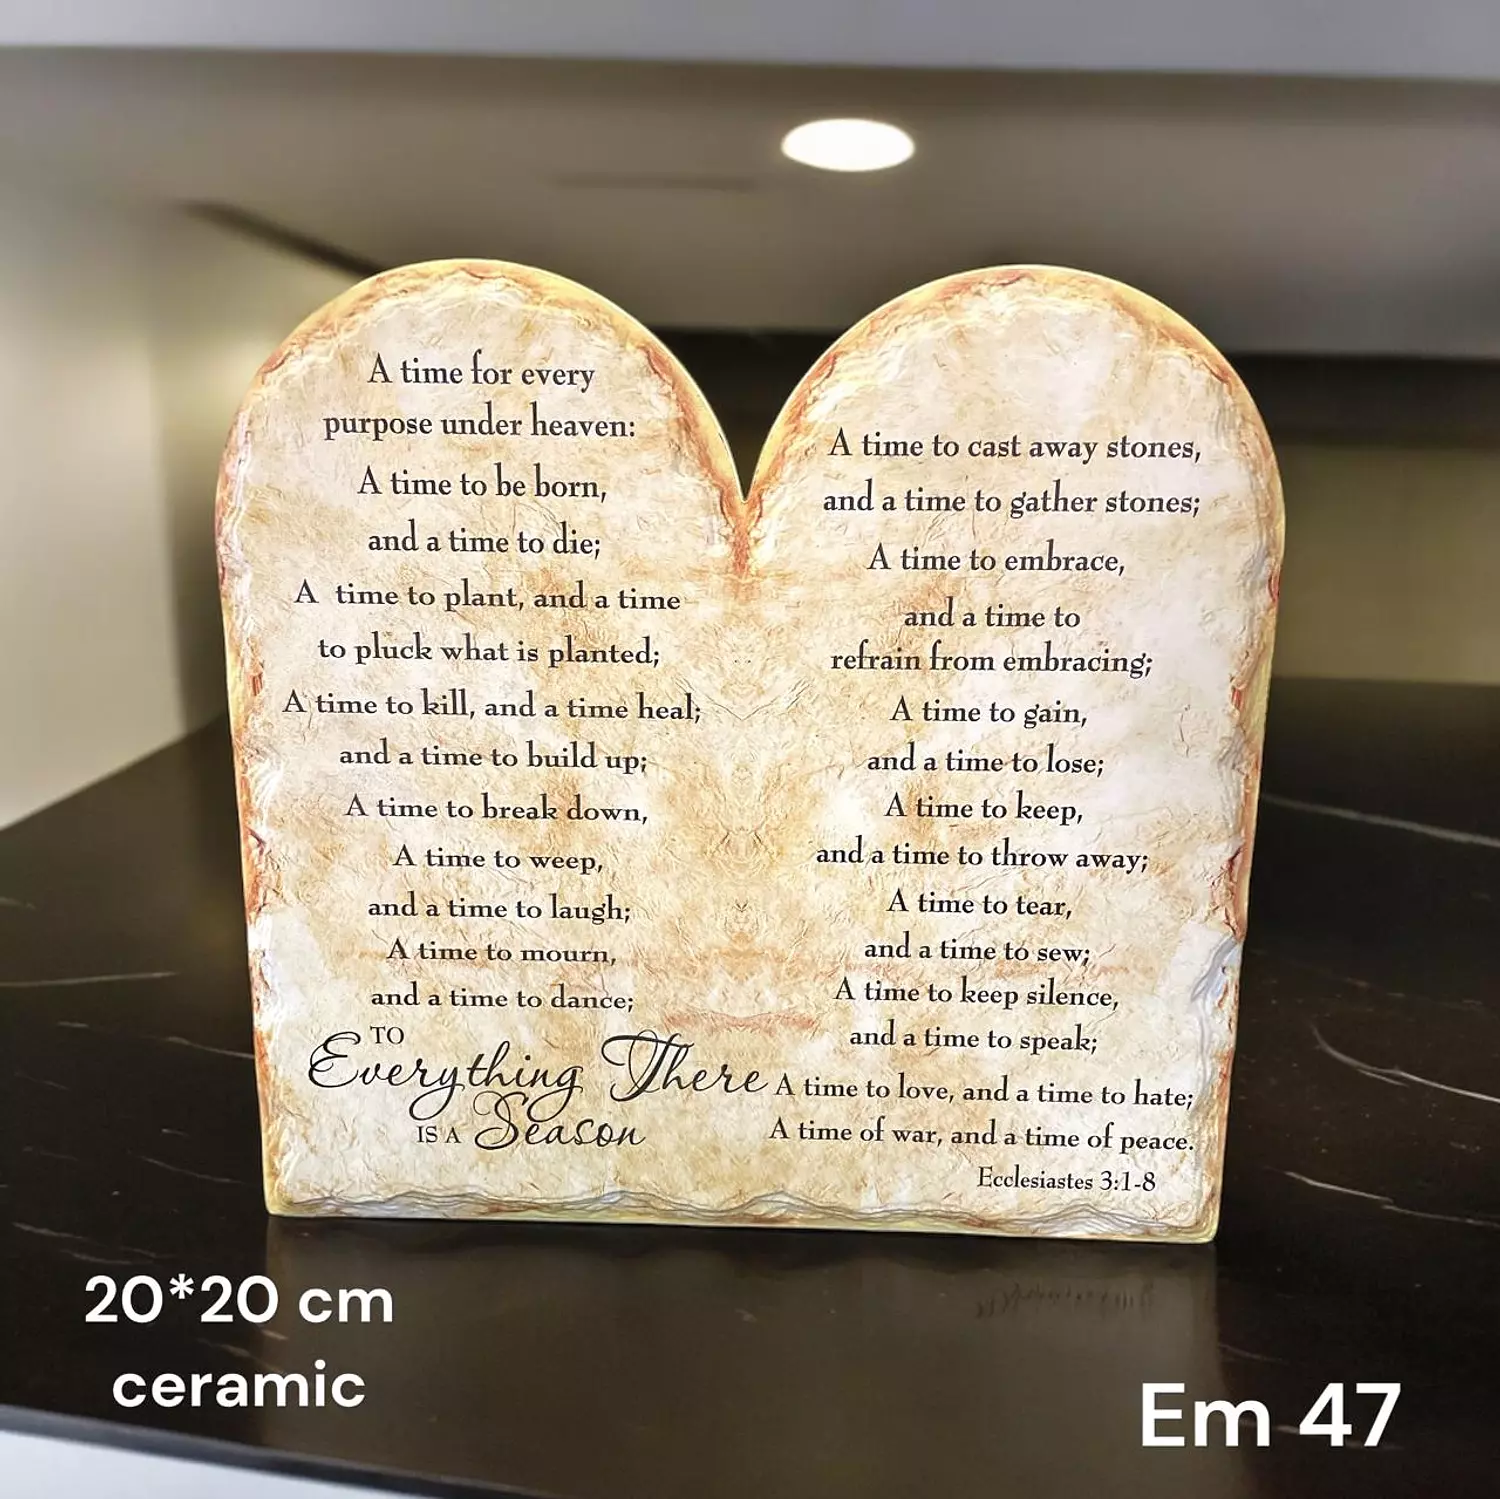 A time for every
purpose under heaven:
A time to be born,
and a time to die;
A time to plant, and a time
to pluck what is planted;
A time to kill, and a time heal;
and a time to build up;
A time to break down,
A time to weep,
and a time to laugh;
A time to mourn,
and a time to dance;
TO
Everything There
IS A Season
A time to cast away stones,
and a time to gather stones;
A time to embrace,
and a time to
refrain from embracing;
A time to gain,
and a time to lose;
A time to keep,
and a time to throw away;
A time to tear,
and a time to sew;
A time to keep silence,
and a time to speak;
A time to love, and a time to hate;
A time of war, and a time of peace.
Ecclesiastes 3:1-8
20*20 cm
ceramic
Em 47